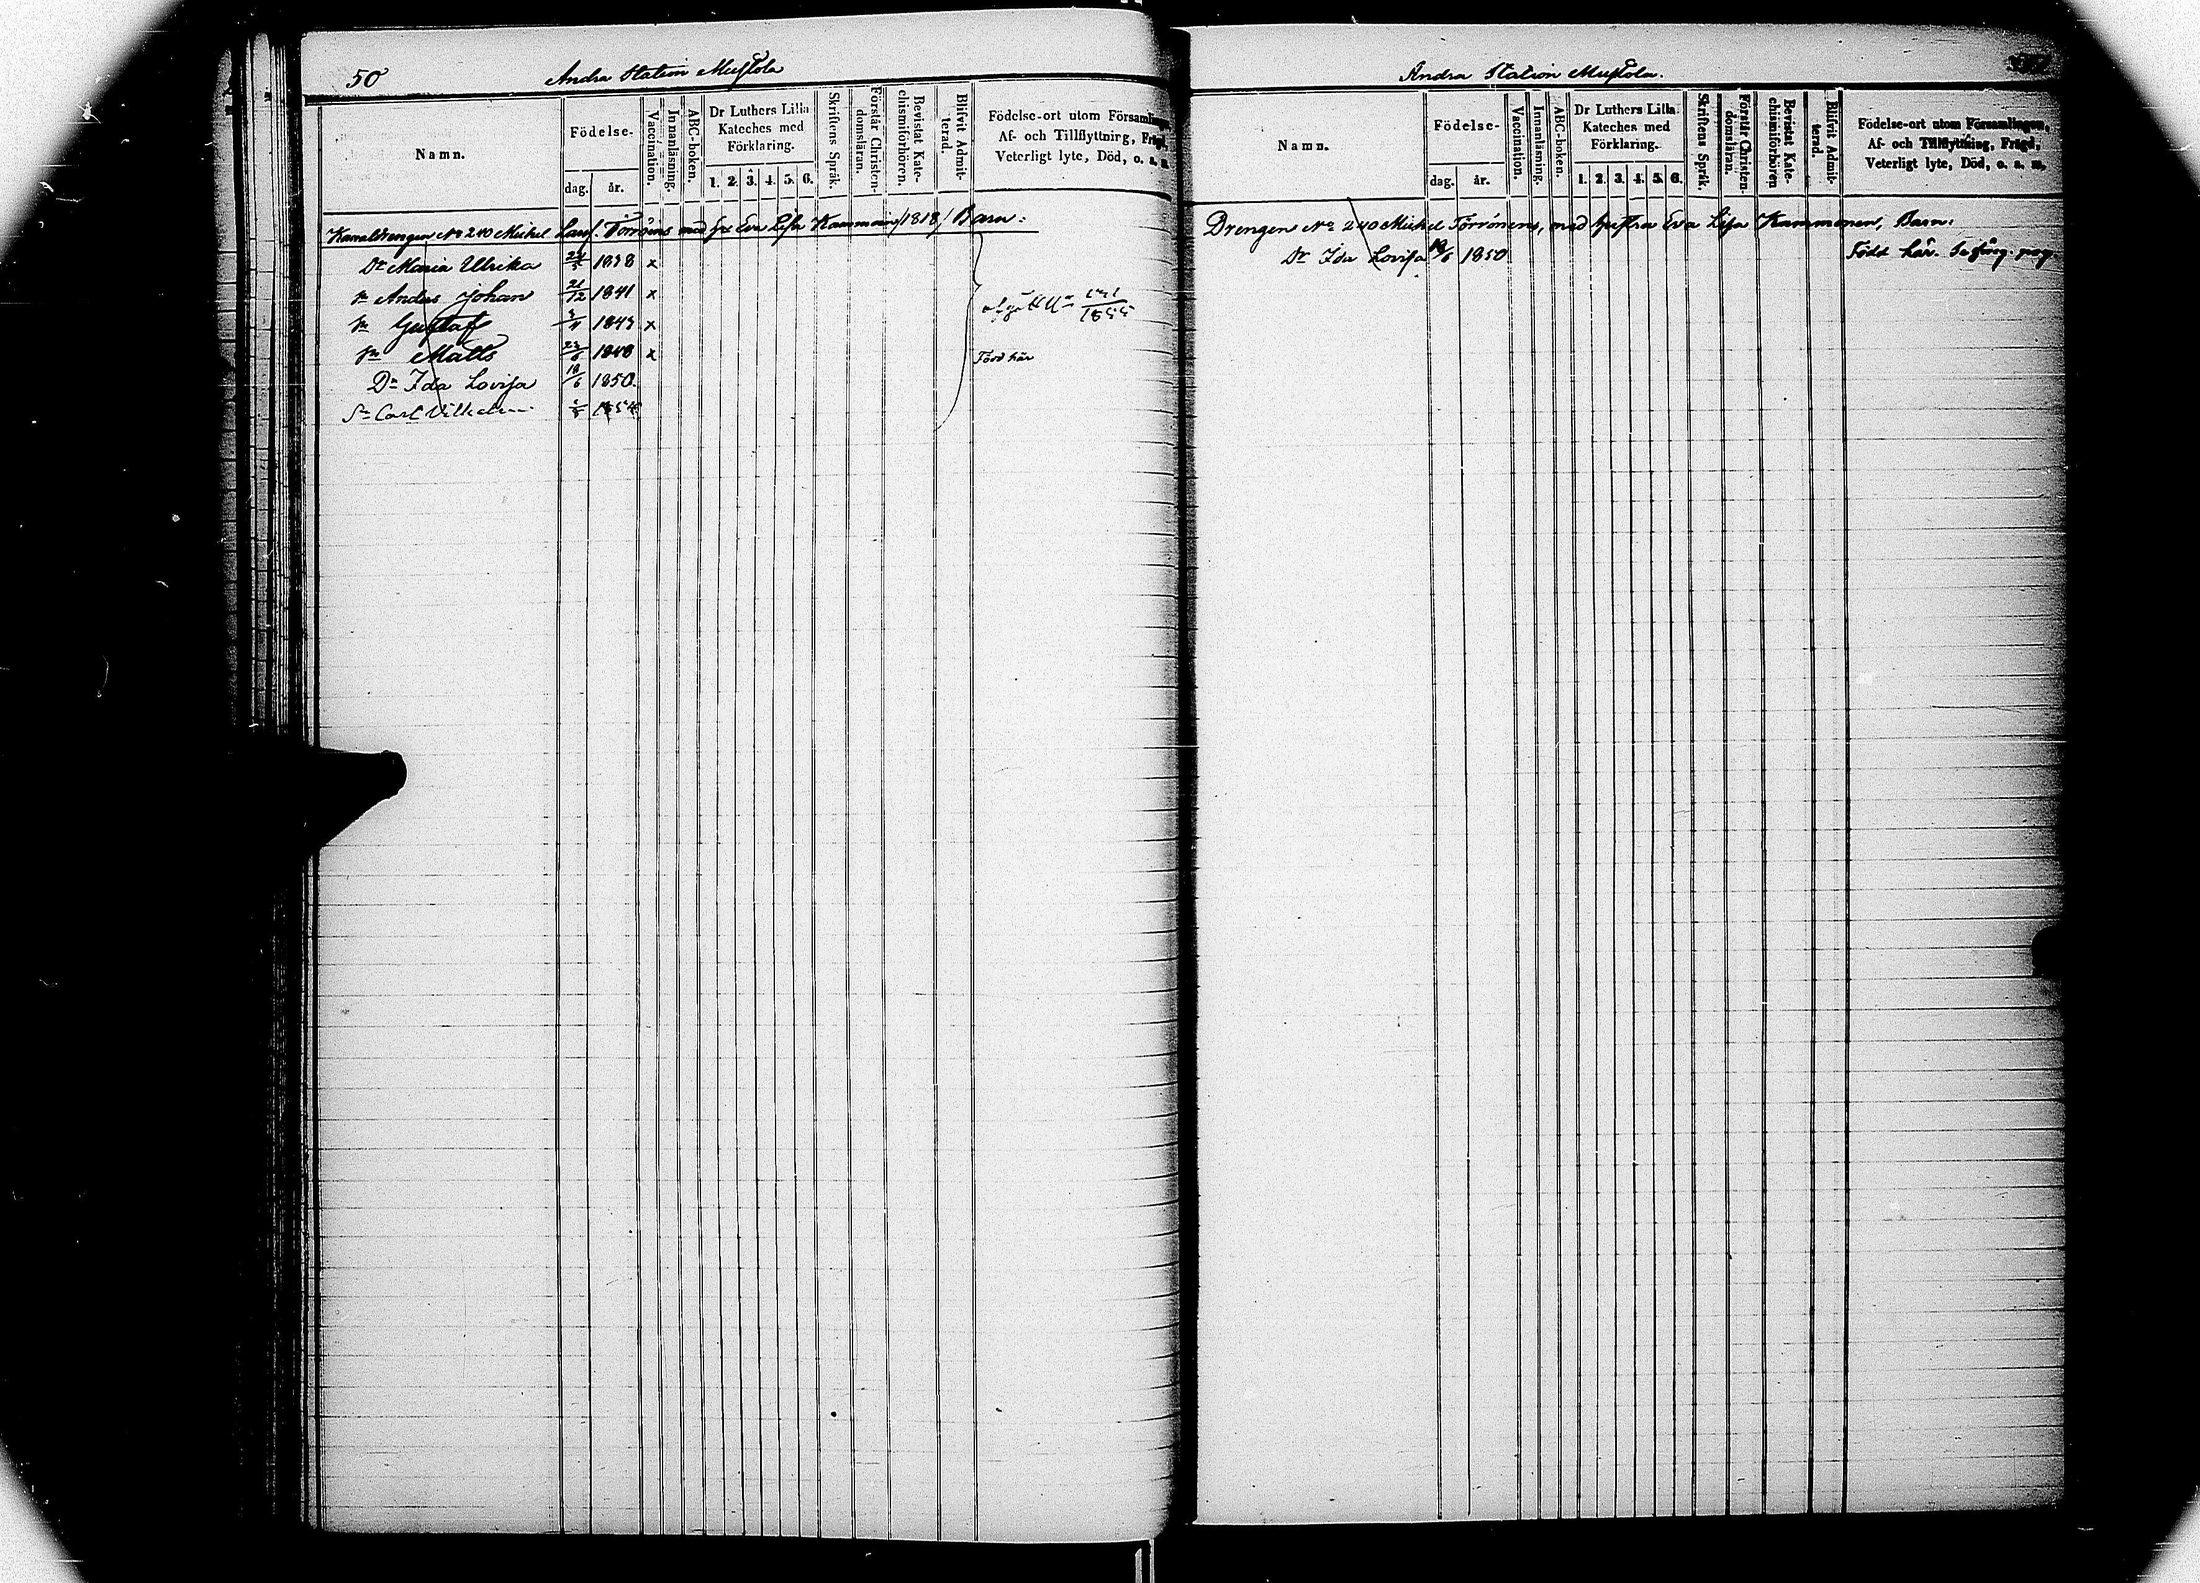 50
Andra Station Mustola
Namn.
Födelse-
dag. år.
Vaccination.
Innanläsning.
ABC-boken.
Dr Luthers Lilla
Kateches med
Förklaring.
1. 2. 3. 4. 5. 6.
Skriftens Språk.
Förstår Christen-
domsläran.
Bevistat Kate-
chismiförhören.
Blifvit Admit-
terad.
Födelse-ort utom Församlingen,
Af- och Tillflyttning, Frägd,
Veterligt lyte, Död, o. s.
Kanaldrengen No 240 Michel Törröins med Eva Lisa Kammoin /1818/ Barn:
Dr Maria Ulrika 1838 x
Sn Anders Johan 21/12 1841 x
Sn Gustaf 1843 x
Sn Matts 23/6 1848 x Född här
Dr Ida Lovisa 18/6 1850.
Sn Carl Vilhelm 1854
1855
Andra Station Mustola.
Namn.
Födelse-
dag. år.
Vaccination.
Innanläsning.
ABC-boken.
Dr Luthers Lilla
Kateches med
Förklaring.
1. 2. 3. 4. 5. 6.
Skriftens Språk.
Förstår Christen-
domsläran.
Bevistat Kate-
chismiförhören
Blifvit Admit-
terad.
Födelse-ort utom Församlingen,
Af- och Tillflyttning, Frägd,
Veterligt lyte, Död, o. s. m.
Drengen No 240 Michel Törrönens, med hustru Eva Lisa Kammonen, Barn:
Dr Ida Lovisa 18/6 1850 Född här. Se föreg. pag.